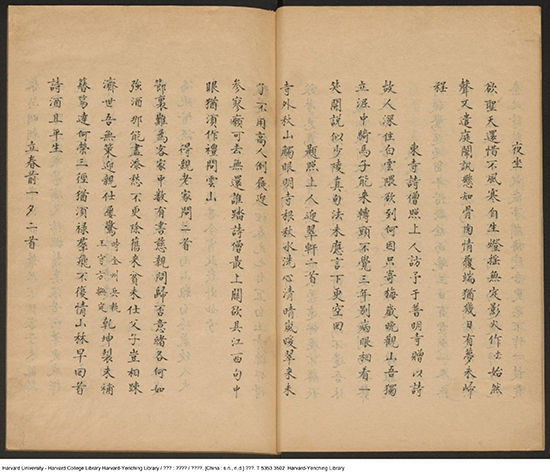 夜坐
欲聖天運惜不風寒自生燈搖無定影火作始然
聲又遣庭闈訊慙如骨肉情履端猶幾日有夢來歸
程
東寺詩僧照上人訪予于普明寺贈以詩
故人深住白雲隈欲到何因只寄梅歲晚觀山吾獨
立泥中騎馬子能來轉頭不覺三年別病眼相看一
笑開説似少陵真句法未應言下更空回
題照上人迎翠軒二首
寺外秋山觸眼明寺根秋水洗心清晴嵐暖翠來未
了不用高人倒屐迎
參寥癩可去無還誰踏詩僧最上關欲具江西句中
眼猶須作禮問雲山
得親老家問二首
節裏難為客家中數有書慈親問歸否意緒各何如
強酒那能盡添愁不更除舊来貧未仕父子豈相疎
濟世吾無策迎親仕屢驚時金州兵亂王守撫定乾坤製未補
暮達何榮三徑猶須禄羣飛不復情山林早回首
詩酒且平生
立春前一夕二首
Harvard University - Harvard College Library Harvard-Yenching Library / ??? : ???? / ????. [China : s.n., n.d.] ???. T 5353 3502 Harvard-Yenching Library